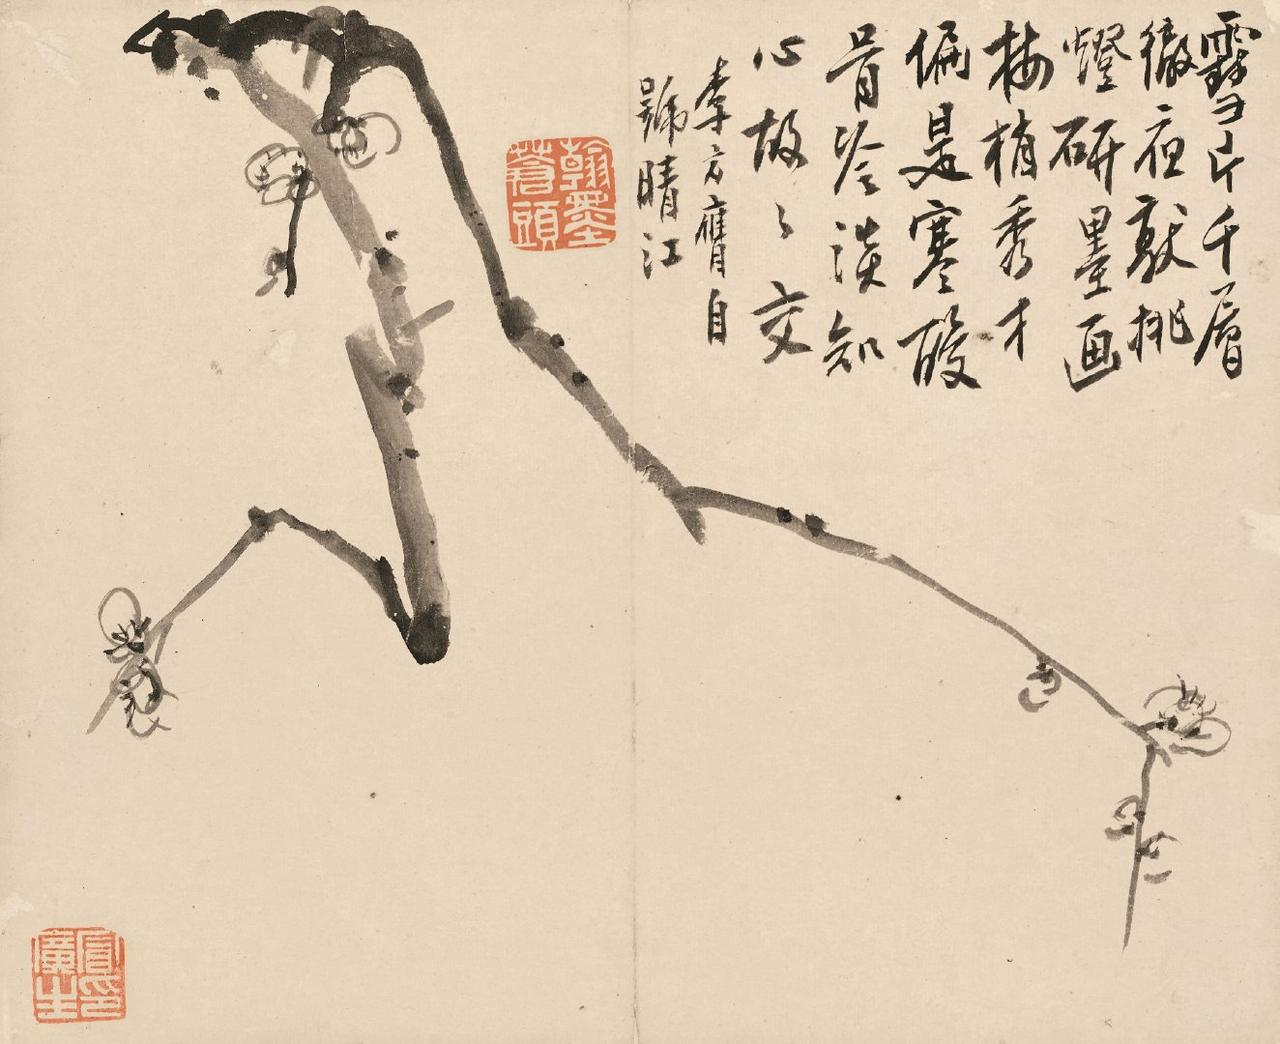 雪片千層
徹夜敲挑
燈研墨画
梅梢秀才
偏是寒酸
骨冷淡知
心故々交
李方膺自
號晴江
翰墨
蒼頭